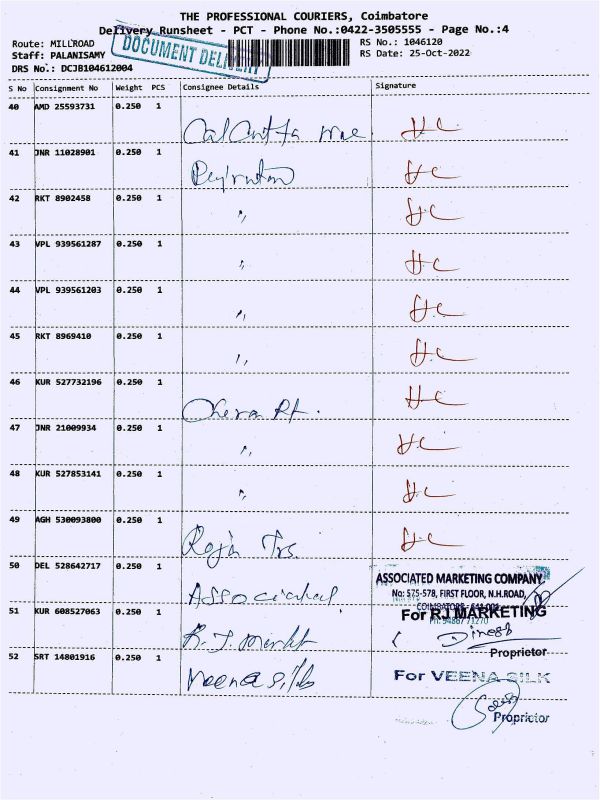 THE PROFESSIONAL COURIERS, Coimbatore
Delivery Runsheet - PCT - Phone No.:0422-3505555 - Page No.:4
Route: MILLROAD
Staff: PALANISAMY
DRS No.: DCJB104612004
DOCUMENT DELIVERY
RS No.: 1046120
RS Date: 25-Oct-2022
S No Consignment No Weight PCS Consignee Details Signature
40 AMD 25593731 0.250 1 H.C
41 JNR 11028901 0.250 1 H.C
42 RKT 8902458 0.250 1 " H.C
43 VPL 939561287 0.250 1 " H.C
44 VPL 939561203 0.250 1 " H.C
45 RKT 8969410 0.250 1 " H.C
46 KUR 527732196 0.250 1 H.C
47 JNR 21009934 0.250 1 " H.C
48 KUR 527853141 0.250 1 " H.C
49 AGH 530093800 0.250 1 H.C
50 DEL 528642717 0.250 1
ASSOCIATED MARKETING COMPANY
No: 575-578, FIRST FLOOR, N.H.ROAD,
COIMBATORE - 641 001
51 KUR 608527063 0.250 1 R.J. Markt
For RJ MARKETING
Dinesh
Proprietor
52 SRT 14801916 0.250 1 Veena silks
For VEENA SILK
Proprietor